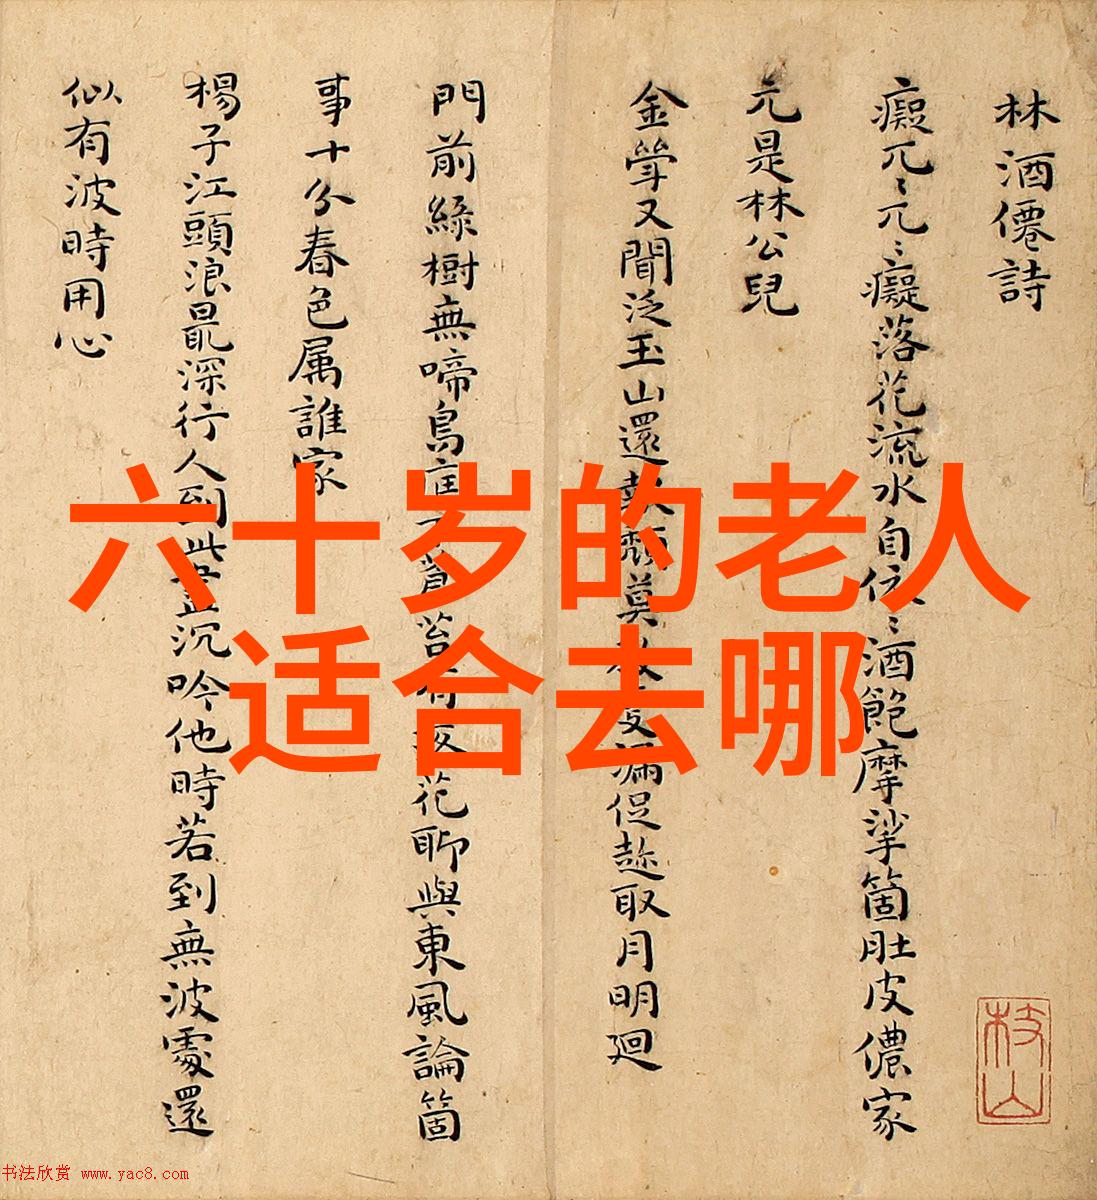 林酒僊詩
癡兀々兀々癡落花流水自依々酒飽摩挲箇肚皮儂家
元是林公兒
金斝又聞泛玉山還頽莫漏促趂取月明廻
門前綠樹無啼鳥庭下蒼苔有花聊與東風論箇
事十分春色属誰家
楊子江頭浪最深行人到此盡沉吟他時若到無波處還
似有波時用心
枝山
六十岁的老人
适合去哪
书法欣赏 www.yac8.com